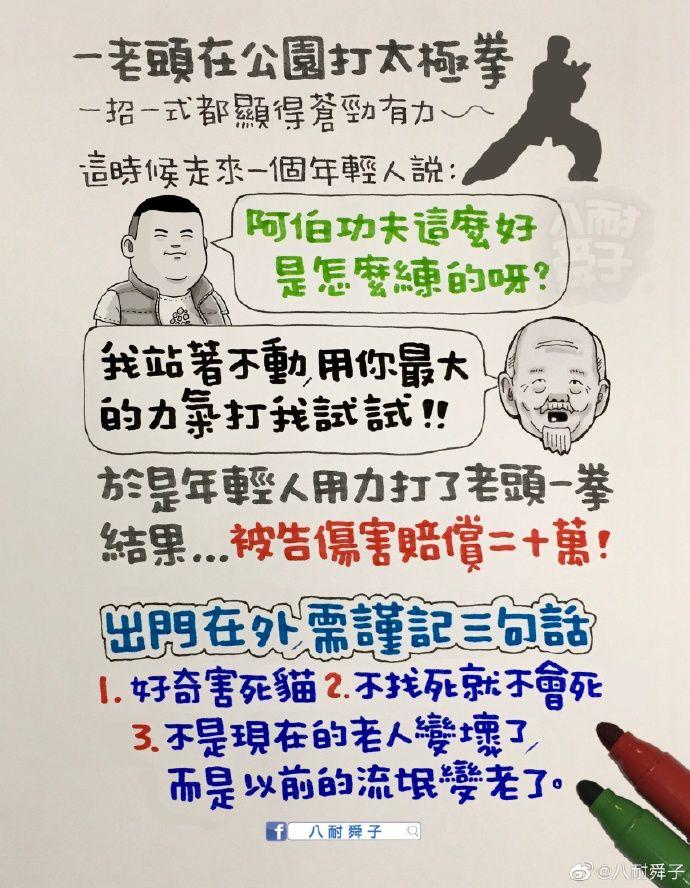 一老頭在公園打太極拳
一招一式都顯得蒼勁有力～
這時候走來一個年輕人説：
八耐
舜子
阿伯功夫這麼好
是怎麼練的呀？
我站著不動，用你最大
的力氣打我試試！！
於是年輕人用力打了老頭一拳
結果...被告傷害賠償二十萬！
出門在外，需謹記三句話
1. 好奇害死貓 2. 不找死就不會死
3. 不是現在的老人變壞了，
而是以前的流氓變老了。
f 八耐舜子
@八耐舜子